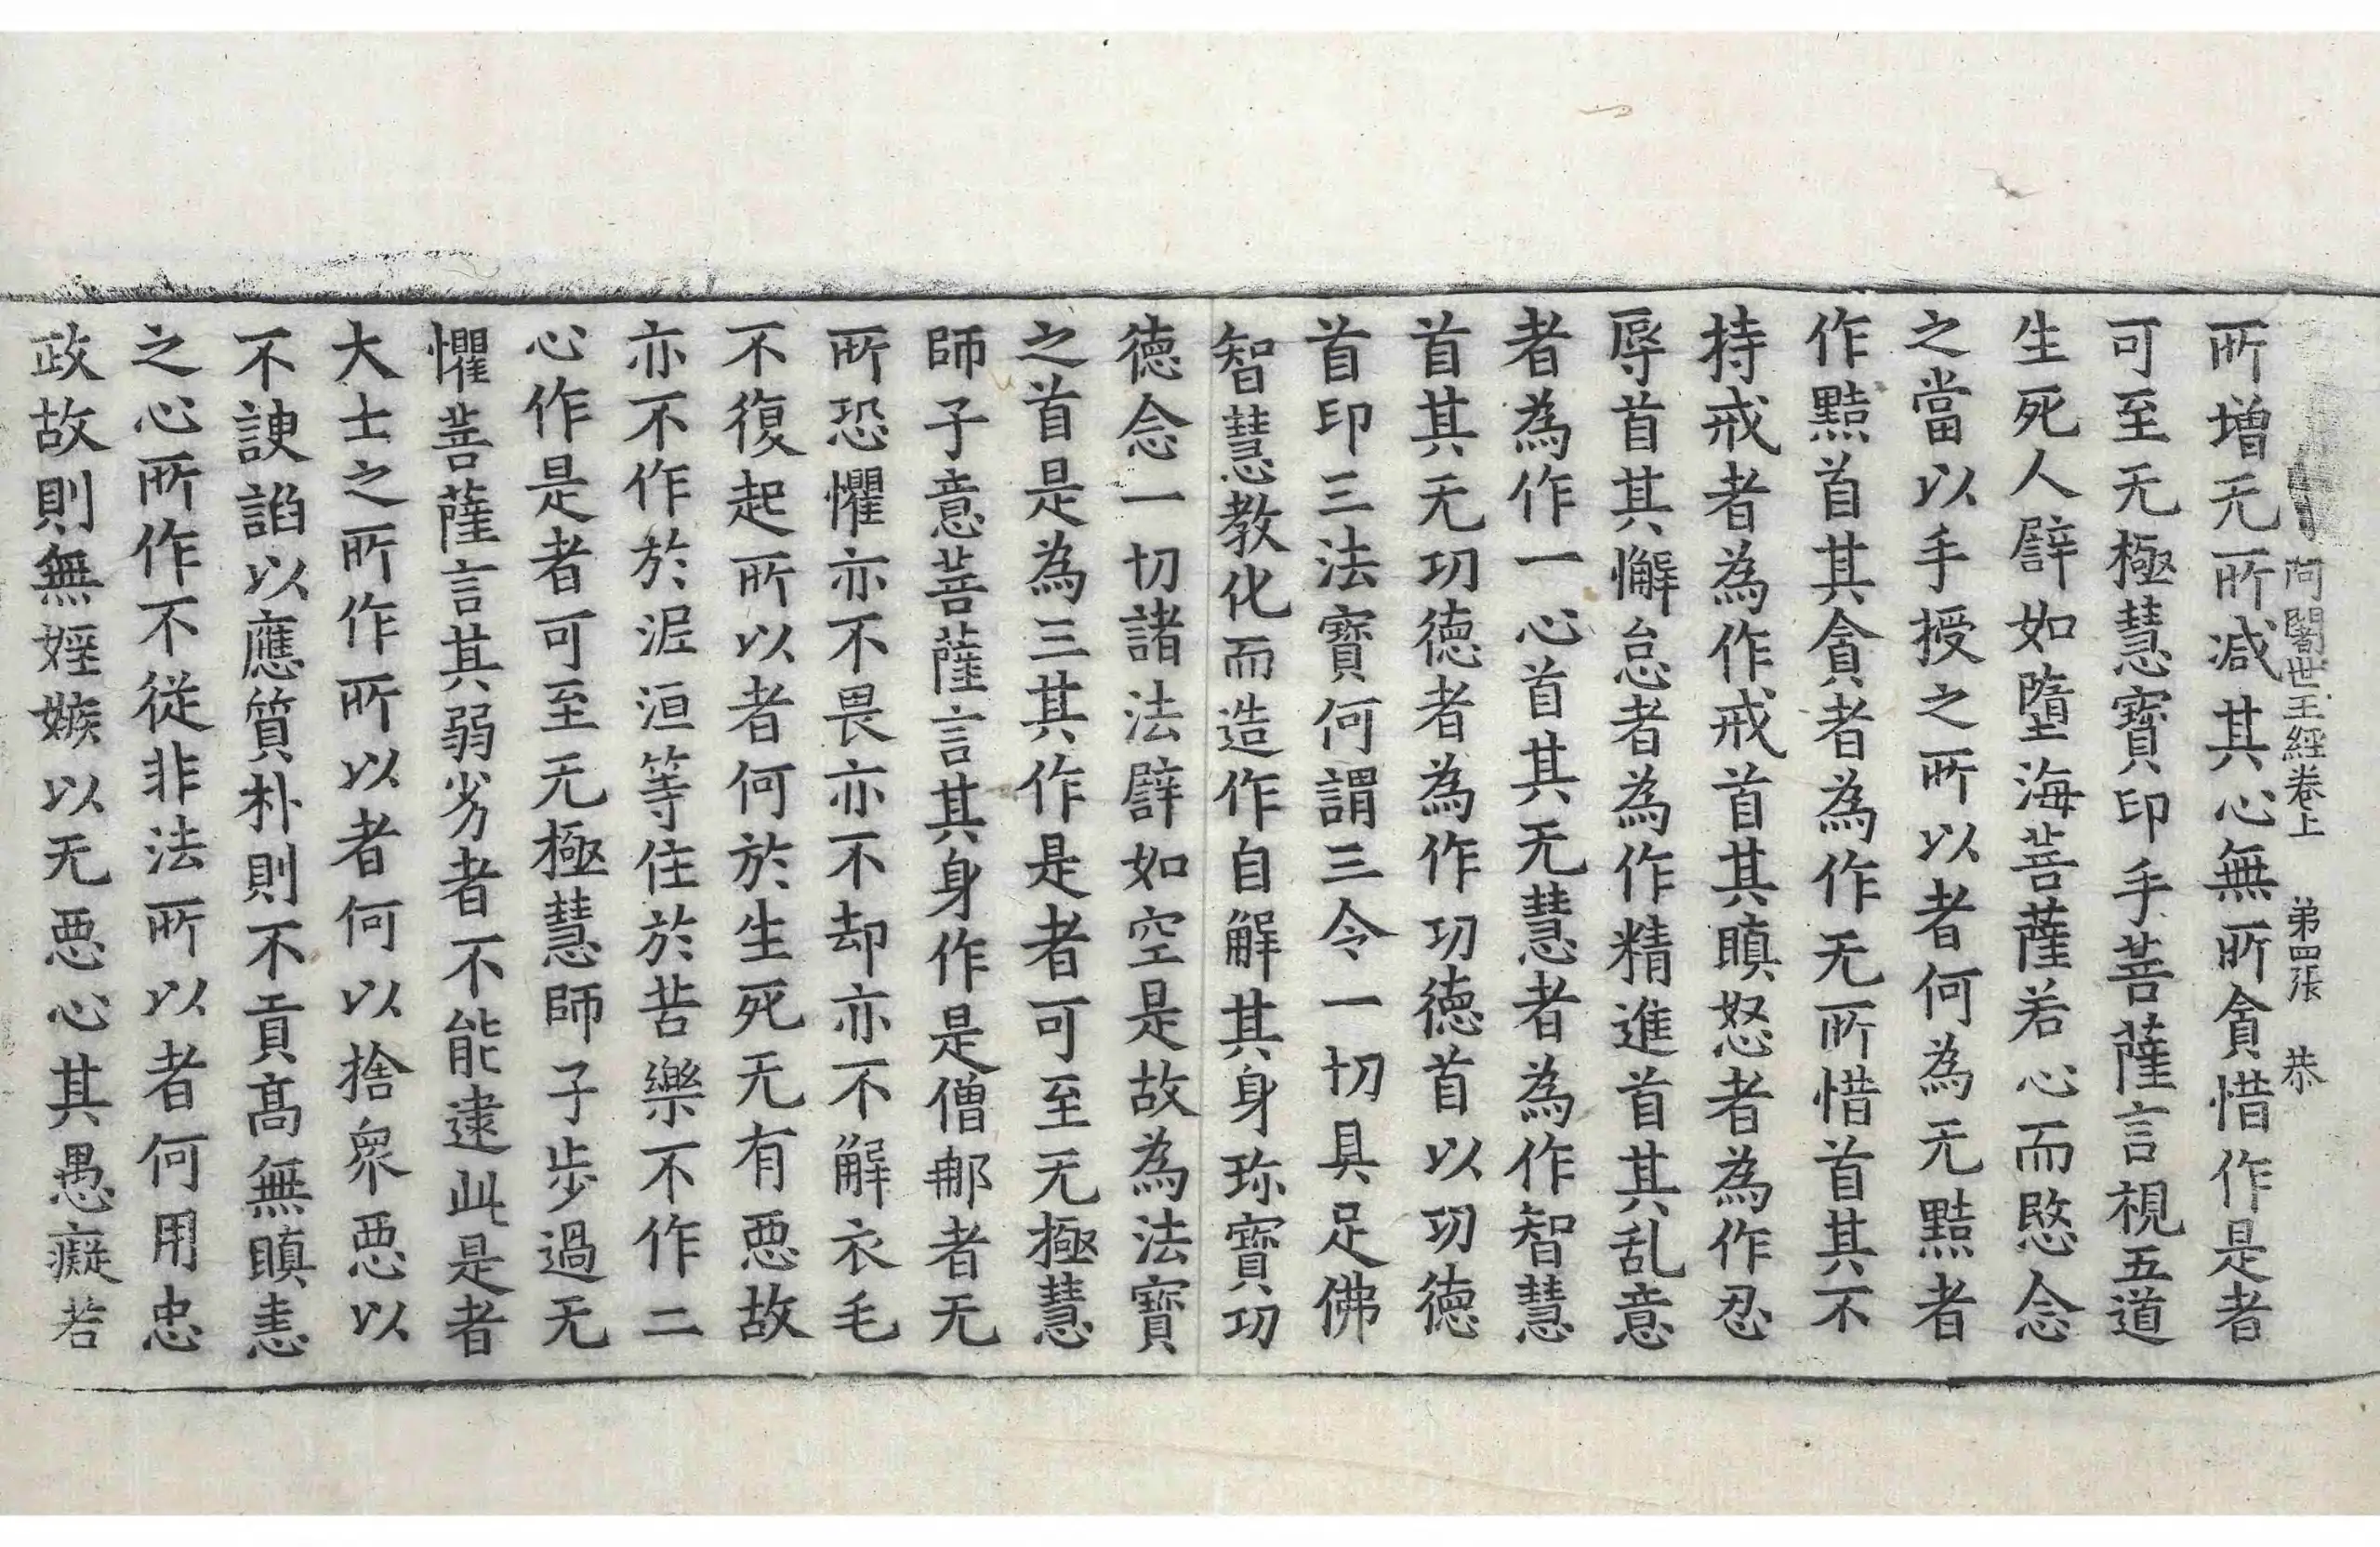 阿闍世王經卷上 弟四張 恭
所增无所減其心無所貪惜作是者
可至无極慧寶印手菩薩言視五道
生死人譬如墮海菩薩若心而愍念
之當以手授之所以者何為无黠者
作黠首其貪者為作无所惜首其不
持戒者為作戒首其瞋怒者為作忍
辱首其懈怠者為作精進首其乱意
者為作一心首其无慧者為作智慧
首其无功德者為作功德首以功德
首印三法寶何謂三令一切具足佛
智慧教化而造作自解其身珎寶功
德念一切諸法譬如空是故為法寶
之首是為三其作是者可至无極慧
師子意菩薩言其身作是僧那者无
所恐懼亦不畏亦不却亦不解衣毛
不復起所以者何於生死无有惡故
亦不作於泥洹等住於苦樂不作二
心作是者可至无極慧師子步過无
懼菩薩言其弱劣者不能逮此是者
大士之所作所以者何以捨衆惡以
不諛諂以應質朴則不貢高無瞋恚
之心所作不從非法所以者何用忠
政故則無婬嫉以无惡心其愚癡若